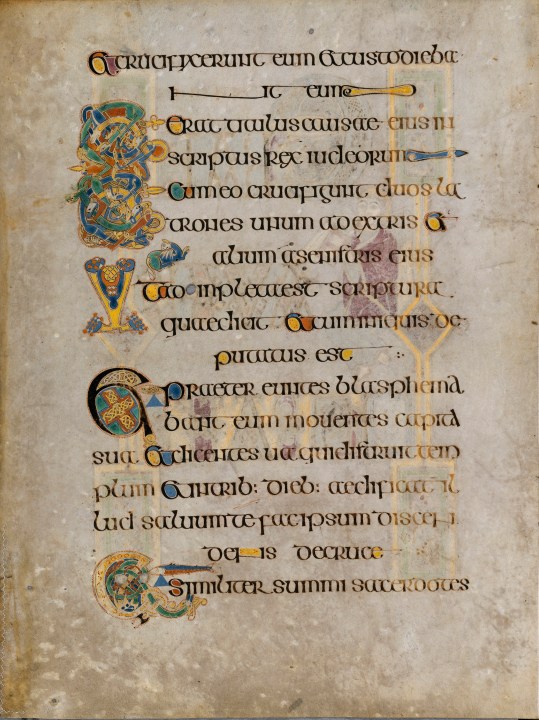 Et crucifixerunt eum et custodieba
nt eum
Et erat titulus causae eius in
scriptus rex iudeorum
Et cum eo crucifigunt duos la
trones unum adextris et
alium asenistris eius
Et adinpleta est scriptura
quae dicit et cum iniquis de
putatus est
Et praeter euntes blasphema
bant eum mouentes capita
sua et dicentes ua qui distruit tem
plum et in trib: dieb: aedificat il
lud saluum te fac ipsum discen
dens decruce
Similiter summi sacerdotes